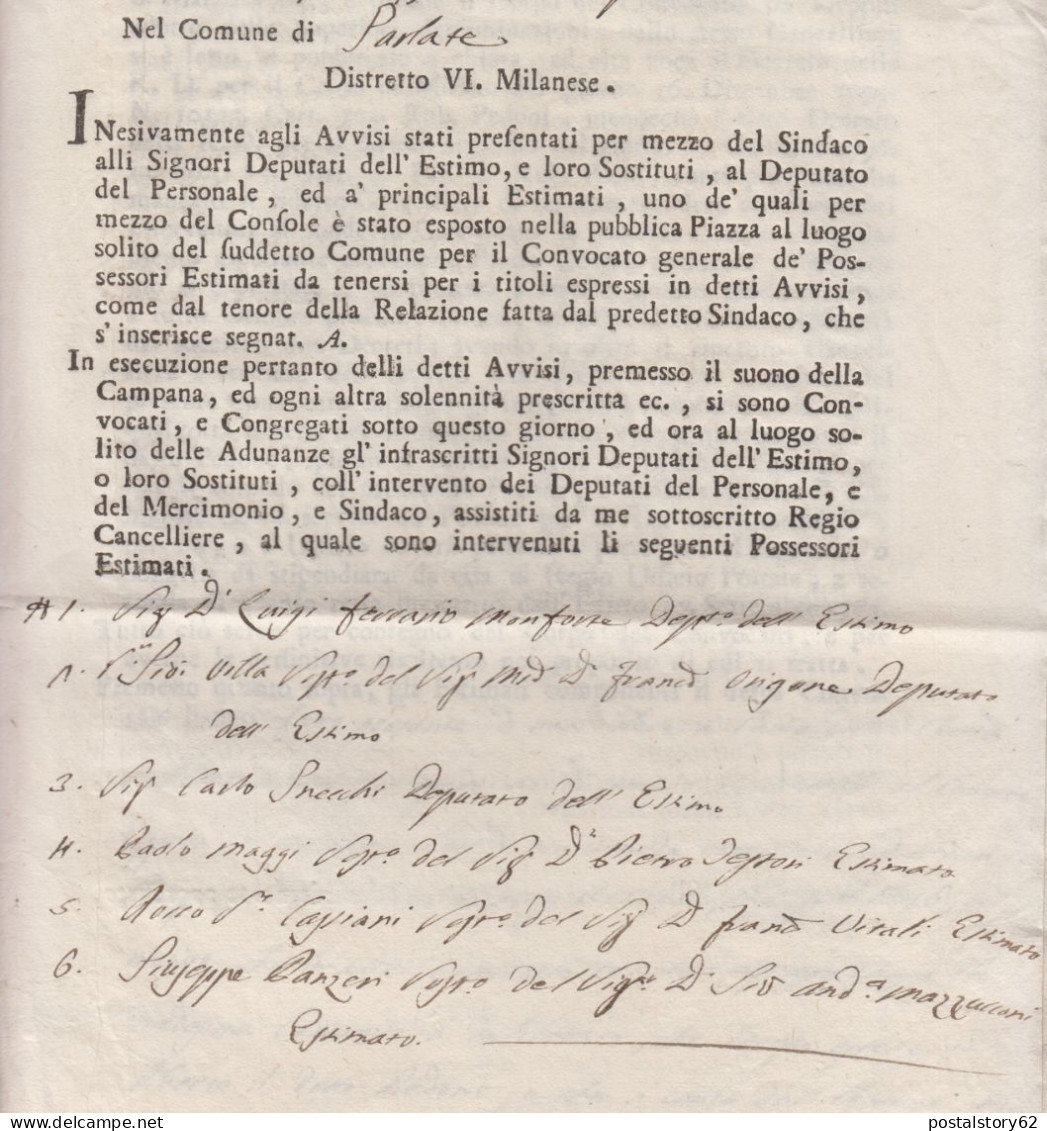 Nel Comune di Parlate
Distretto VI. Milanese.
INesivamente agli Avvisi stati preſentati per mezzo del Sindaco
alli Signori Deputati dell' Estimo, e loro Sostituti, al Deputato
del Personale, ed a' principali Estimati, uno de' quali per
mezzo del Conſole è stato esposto nella pubblica Piazza al luogo
solito del ſuddetto Comune per il Convocato generale de' Pos-
sessori Estimati da tenersi per i titoli espressi in detti Avvisi,
come dal tenore della Relazione fatta dal predetto Sindaco, che
s' inserisce segnat. A.
In esecuzione pertanto delli detti Avvisi, premesso il suono della
Campana, ed ogni altra solennità prescritta ec., si sono Con-
vocati, e Congregati sotto questo giorno, ed ora al luogo so-
lito delle Adunanze gl' infrascritti Signori Deputati dell' Estimo,
o loro Sostituti, coll' intervento dei Deputati del Personale, e
del Mercimonio, e Sindaco, assistiti da me sottoscritto Regio
Cancelliere, al quale sono intervenuti li seguenti Possessori
Estimati.
1. Sig D Luigi ferrario Monforte Dep.to dell' Estimo
Villa del Sig D franc Origone Deputato
dell' Estimo
3. Sig Carlo Deputato dell' Estimo
4. Paolo Maggi del Sig D Pietro Testori Estimato
5. Rocco Cassiani del Sig D franc Vitali Estimato
6. Giuseppe Panzeri del Sig.r D Gio And.a Mazzuccani
Estimato.
postalstory62
delcampe.net